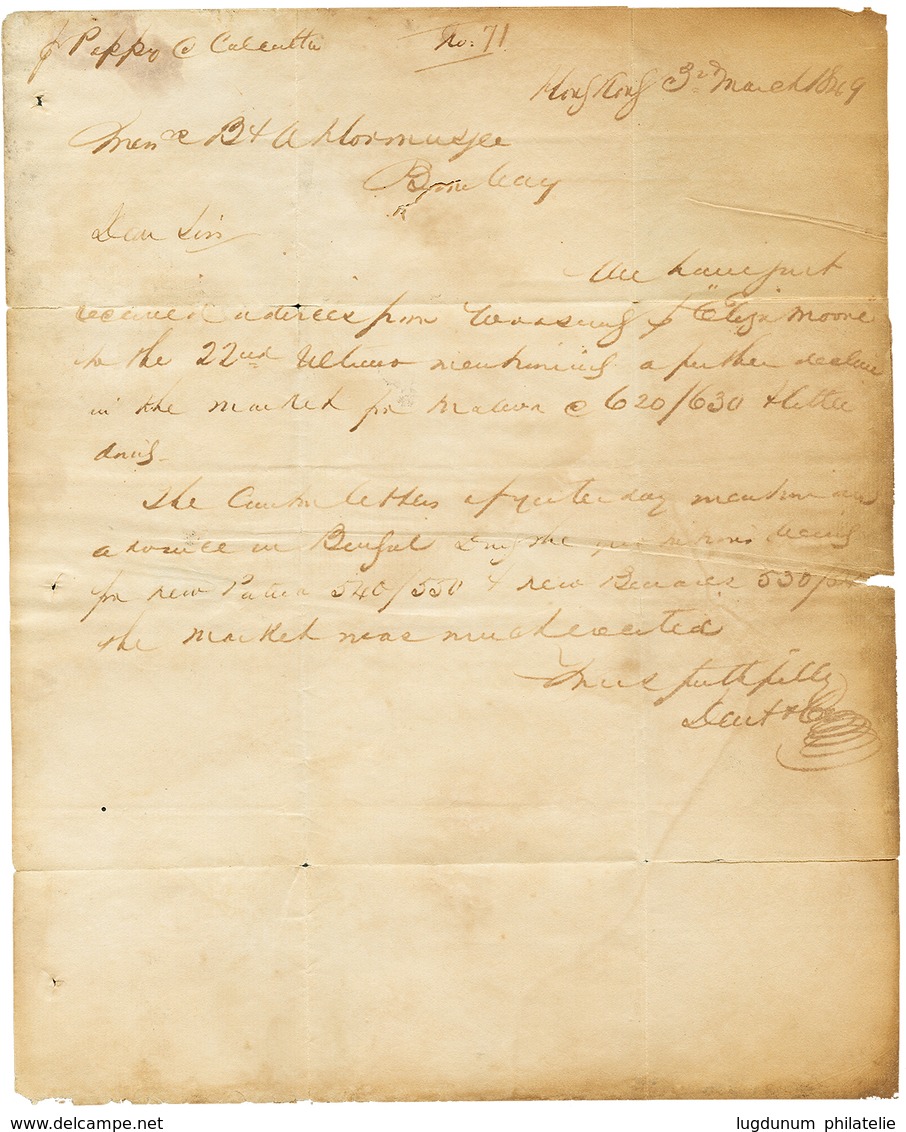 p Poppy @ Calcutta No: 71
Hong Kong 3rd March 1849
Messrs B & A Hormusjee
Bombay
Dear Sirs
We have just
received advices from Woosung p "Eliza Moore"
to the 22nd Ultimo mentioning a further decline
in the market for Malwa @ 620/630 & little
doing.
The Canton letters of yesterday mention an
advance in Bengal Drug the quotations being
for new Patna 540/550 & new Benares 530/
the market was much excited
Yours faithfully
Dent & Co
www.delcampe.net
lugdunum philatelie